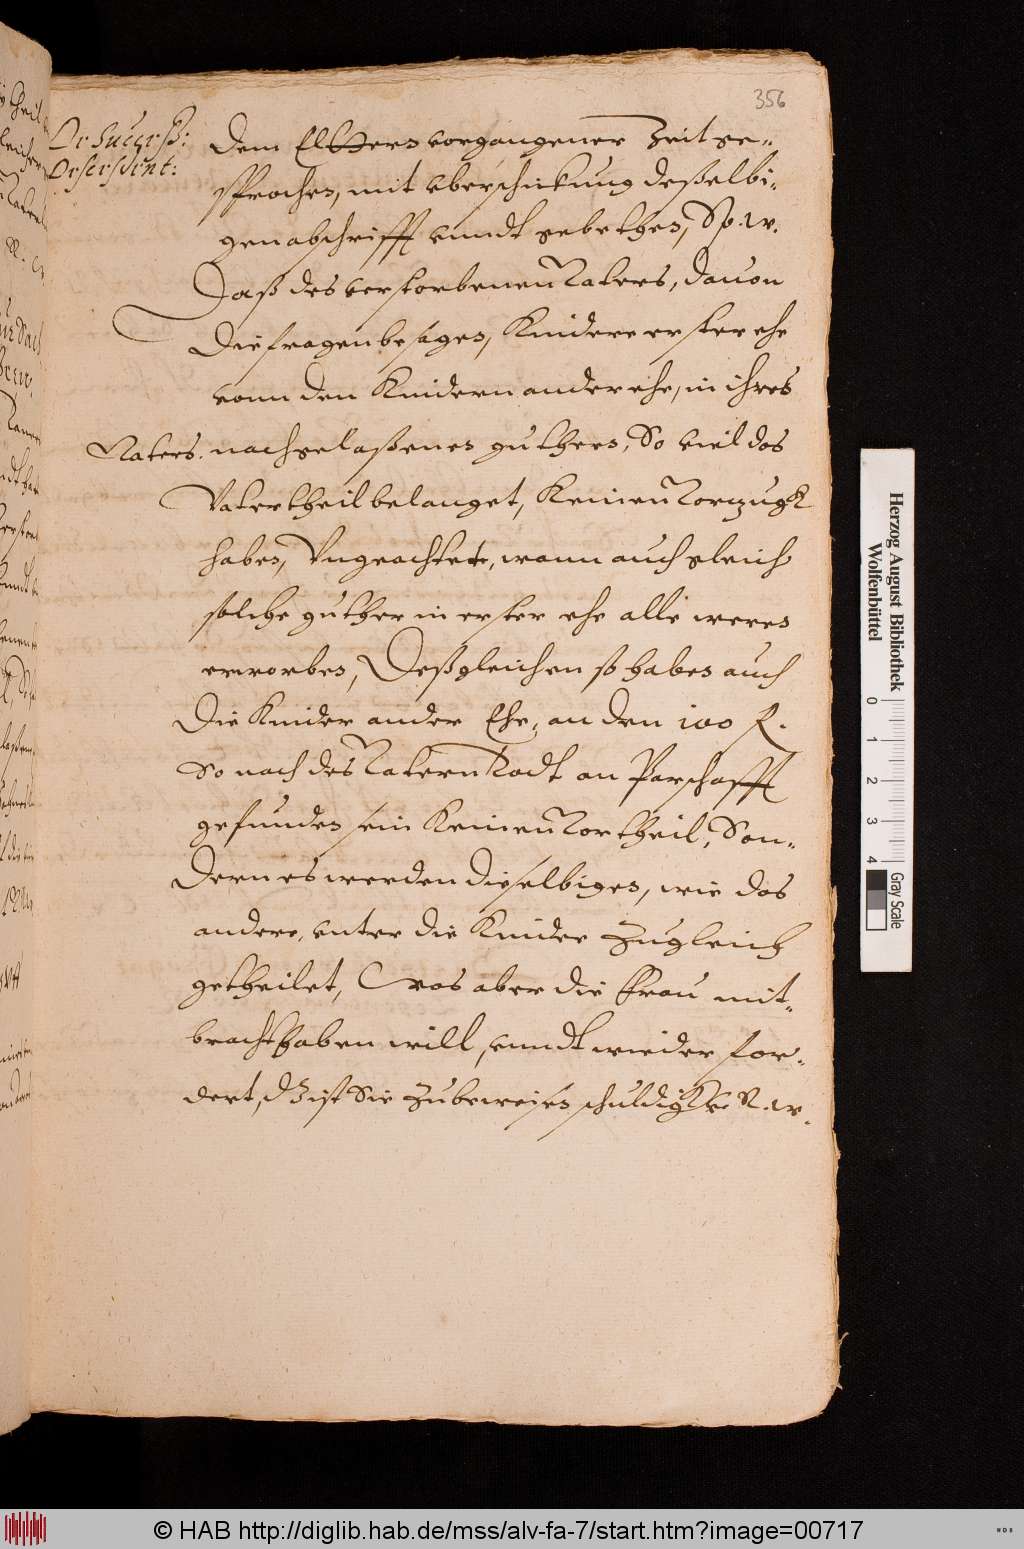 356
De Success:
Descendent:
Dem Eltters vorgangener Zeit ge-
sprochen, mit vberschickung deßelbi-
gen abschrifft vnndt gebethen, Sp. w.
Daß des verstorbenen Vaters, dauon
die fragen besagen, Kindere erster ehe
vonn den Kindern ander ehe, in ihres
Vaters nachgelaßenen guthern, So viel das
Vatertheil belanget, Keinen Vorzugk
haben, Vngeachtet, wann auch gleich
solche guther in erster ehe alle weren
erworben, Deßgleichen so haben auch
die Kinder ander Ehe, an den 100 f.
So nach des Vatern Todt an Parschafft
gefunden sein Keinen Vortheil, Son-
dern es werden dieselbigen, wie das
andere, vnter die Kinder zugleich
getheilet, Was aber die Frau mit-
bracht haben will, vnndt wieder for-
dert, dz ist Sie zubeweisen schuldigk V. R. w.
Herzog August Bibliothek
Wolfenbüttel
0 1 2 3 4
Gray Scale
© HAB http://diglib.hab.de/mss/alv-fa-7/start.htm?image=00717